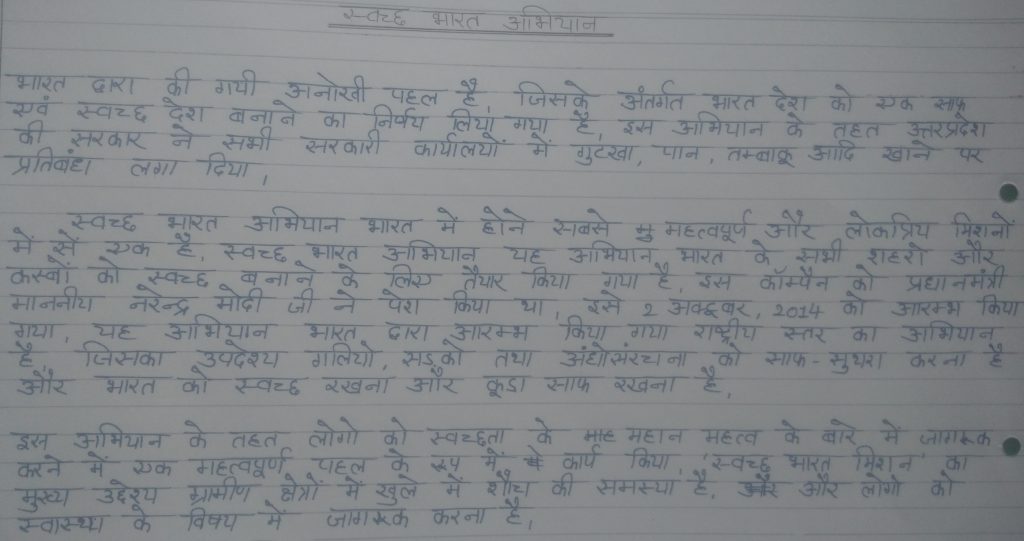 स्वच्छ भारत अभियान
भारत द्वारा की गयी अनोखी पहल है, जिसके अंतर्गत भारत देश को एक साफ
एवं स्वच्छ देश बनाने का निर्णय लिया गया है, इस अभियान के तहत उत्तरप्रदेश
की सरकार ने सभी सरकारी कार्यालयों में गुटखा, पान, तम्बाकू आदि खाने पर
प्रतिबंध लगा दिया,
स्वच्छ भारत अभियान भारत में होने सबसे महत्वपूर्ण और लोकप्रिय मिशनों
में से एक है, स्वच्छ भारत अभियान यह अभियान भारत के सभी शहरो और
कस्बों को स्वच्छ बनाने के लिए तैयार किया गया है, इस कॉम्पैन को प्रधानमंत्री
माननीय नरेन्द्र मोदी जी ने पेश किया था, इसे 2 अक्टूबर, 2014 को आरम्भ किया
गया, यह अभियान भारत द्वारा आरम्भ किया गया राष्ट्रीय स्तर का अभियान
है जिसका उपदेश्य गलियो, सड़को तथा अंधोसंरचना को साफ-सुथरा करना है
और भारत को स्वच्छ रखना और कूडा साफ रखना है,
इस अभियान के तहत लोगो को स्वच्छता के महान महत्व के बारे में जागरूक
करने में एक महत्वपूर्ण पहल के रूप में कार्य किया, 'स्वच्छ भारत मिशन' का
मुख्य उद्देश्य ग्रामीण क्षेत्रों में खुले में शौच की समस्या है, और लोगो को
स्वास्थ्या के विषय में जागरूक करना है,